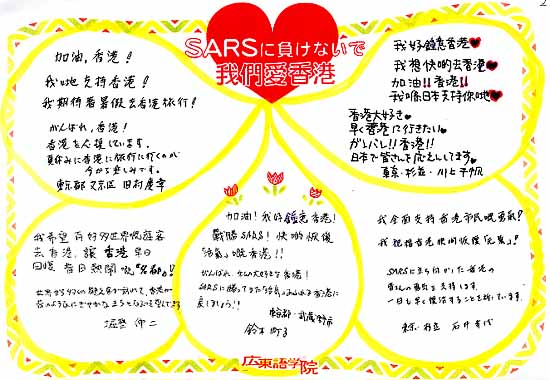 SARSに負けないで
我們愛香港
加油,香港!
我哋支持香港!
我期待着暑假去香港旅行!
がんばれ,香港!
香港を応援しています。
夏休みに香港に旅行に行くのが
今から楽しみです。
東京都文京区 田村慶幸
我好鍾意香港♥
我想快啲去香港♥
加油!!香港!!♥
我喺日本支持你哋♥
香港大好き♥
早く香港に行きたい♥
ガンバレ!!香港!!♥
日本で皆さんを応えんしてます。♥
東京・杉並・川上
我希望有好多世界嘅遊客
去香港,讓香港早日
回復昔日熱鬧嘅"名都"!
世界から多くの観光客が訪れて、香港が
加油!我好鍾意香港!
戰勝SARS!快啲恢復
「活氣」嘅香港!!
がんばれ、私の大好きな香港!
SARSに勝って
戻しょう!!
東京都・武蔵野市
鈴木
我全面支持香港市民嘅勇氣!
我祝福香港快啲恢復「元氣」!
SARSに立ち向かった香港の
皆さんの勇気を支持します。
一日も早く復活することを祈っています。
東京・杉並 石井
広東語学院